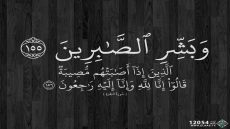 وَبَشِّرِ الصَّابِرِينَ ١٥٥
الَّذِينَ إِذَا أَصَابَتْهُم مُّصِيبَةٌ
قَالُوا إِنَّا لِلَّهِ وَإِنَّا إِلَيْهِ رَاجِعُونَ ١٥٦
12054